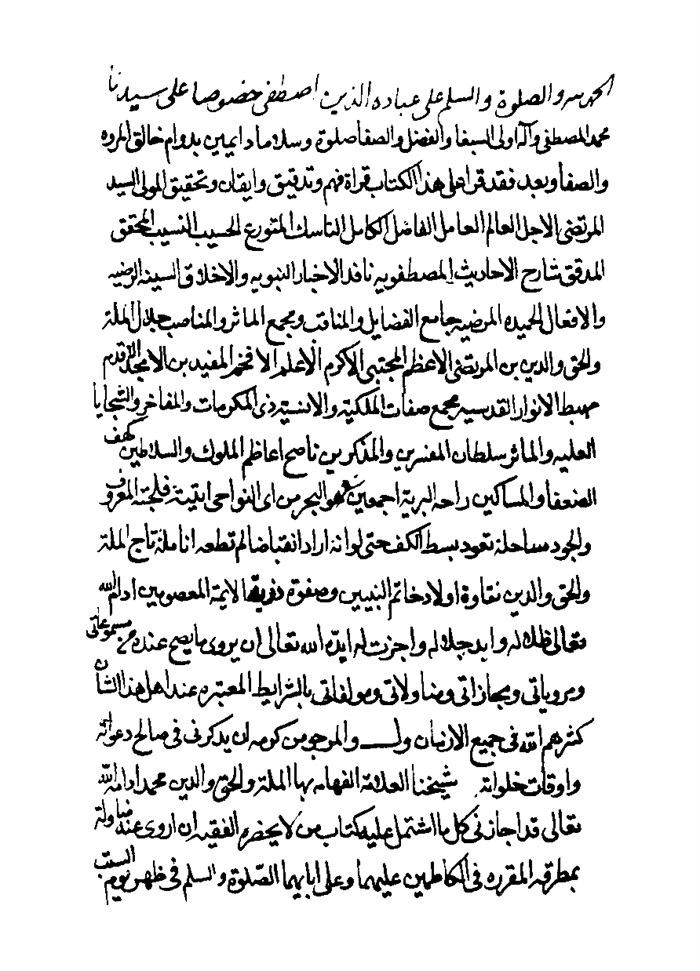 الحمد لله والصلوة والسلم على عباده الذين اصطفى خصوصا على سيدنا
محمد المصطفى وآله اولى السيفا والفضل والصفا صلوة وسلاما دايمين بدوام خالق المروه
والصفا وبعد فقد قرا على هذا الكتاب قراة فهم وتدقيق وايقان وتحقيق المولى السيد
المرتضى الاجل العالم العامل الفاضل الكامل الناسك المتورع الحسيب النسيب المحقق
المدقق شارح الاحاديث المصطفويه ناقد الاخبار النبويه والاخلاق السينه الرضيه
والافعال الحميده المرضيه جامع الفضايل والمناقب ومجمع الماثر والمناصب جلال الملة
والحق والدين بن المرتضى الاعظم المجتبى الاكرم الاعلم الافخم المفيد بن الامجد الاقدم
مهبط الانوار القدسيه مجمع صفات الملكية والانسية ذى المكرمات والمفاخر والسجايا
العليه والماثر سلطان المفسرين والمذكرين ناصح اعاظم الملوك والسلاطين كهف
الضعفا والمساكين راحه البرية اجمعين هو البحر من اى النواحى اتيته فلجته المعروف
والجود ساحلة تعود بسط الكف حتى لوانه اراد انقباضا لم تطعه انامله تاج الملة
والحق والدين نقاوة اولاد خاتم النبيين وصفوة ذرية الايمة المعصومين ادام الله
تعالى ظلاله وابد جلاله واجزت له ايده الله تعالى ان يروى ما يصح عنده من مسموعاتى
ومروياتى ومجازاتى ومناولاتى ومولفاتى بالشرايط المعتبره عند اهل هذا الشان
كثرهم الله فى جميع الازمان والموجو من كرمه ان يذكرنى فى صالح دعواته
واوقات خلواته شيخنا العلامة الفهامه بها الملة والحق والدين محمد ادامه الله
تعالى قد اجازنى كل ما اشتمل عليه كتاب من لا يحضره الفقيه ان اروى عنه مناولة
بطرقه المقرره فى الكاظمين عليهما وعلى ابايهما الصلوة والسلم فى ظهر يوم السبت